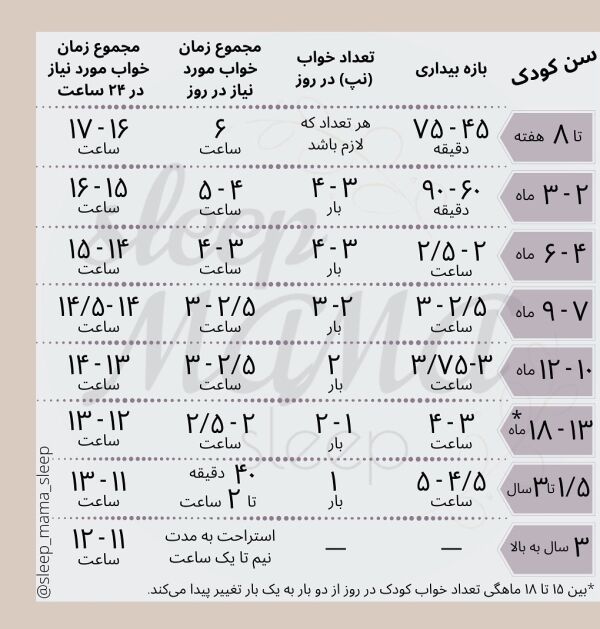 سن کودک
بازه بیداری
تعداد خواب
(نپ) در روز
مجموع زمان
خواب مورد
نیاز در روز
مجموع زمان
خواب مورد نیاز
در ۲۴ ساعت
تا ۸ هفته
۴۵ - ۷۵
دقیقه
هر تعداد که
لازم باشد
۶
ساعت
۱۶ - ۱۷
ساعت
۲ - ۳ ماه
۶۰ - ۹۰
دقیقه
۳ - ۴
بار
۴ - ۵
ساعت
۱۵ - ۱۶
ساعت
۴ - ۶ ماه
۲ - ۲/۵
ساعت
۳ - ۴
بار
۳ - ۴
ساعت
۱۴ - ۱۵
ساعت
۷ - ۹ ماه
۲/۵ - ۳
ساعت
۲ - ۳
بار
۲/۵ - ۳
ساعت
۱۴ - ۱۴/۵
ساعت
۱۰ - ۱۲ ماه
۳ - ۳/۷۵
ساعت
۲
بار
۲/۵ - ۳
ساعت
۱۳ - ۱۴
ساعت
۱۳ - ۱۸ ماه*
۳ - ۴
ساعت
۱ - ۲
بار
۲ - ۲/۵
ساعت
۱۲ - ۱۳
ساعت
۱/۵ تا ۳ سال
۴/۵ - ۵
ساعت
۱
بار
۴۰ دقیقه
تا ۲ ساعت
۱۱ - ۱۳
ساعت
۳ سال به بالا
—
—
استراحت به مدت
نیم تا یک ساعت
۱۱ - ۱۲
ساعت
*بین ۱۵ تا ۱۸ ماهگی تعداد خواب کودک در روز از دو بار به یک بار تغییر پیدا می‌کند.
@sleep_mama_sleep
sleep
MAMA
sleep